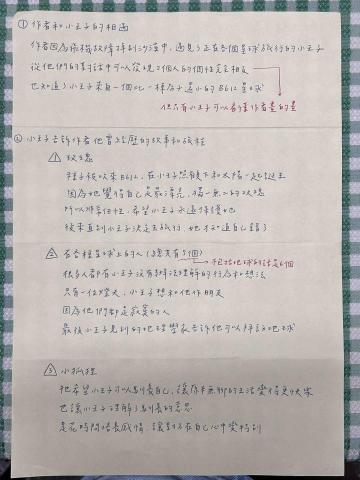 ① 作者和小王子的相遇
作者因為飛機故障掉到沙漠中,遇見了正在各個星球旅行的小王子
從他們的對話中可以發現2個人的個性完全相反
也知道了小王子來自一個比一棟房子還小的B612星球
但只有小王子可以看懂作者畫的畫
② 小王子告訴作者他曾經歷的故事和旅程
1 玫瑰
種子被吹來B612,在小王子照顧下和太陽一起誕生
因為她覺得自己是最漂亮,獨一無二的玫瑰
所以非常任性,希望小王子永遠保護她
後來直到小王子決定去旅行,她才知道自己錯了
2 各各種星球上的人(總共有7個)
不包括地球的話是6個
很多人都有小王子沒有辦法理解的行為和想法
只有一位燈夫,小王子想和他作朋友
因為他們都是寂寞的人
最後小王子見到的地理學家告訴他可以拜訪地球
3 小狐狸
牠希望小王子可以馴養自己,讓原本無聊的生活變得更快樂
也讓小王子理解了馴養的意思
是花時間培養感情,讓對方在自己心中變特別